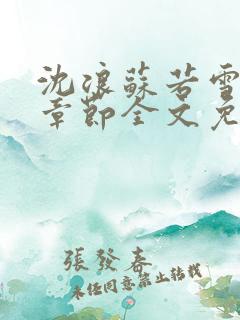 沈浪蘇若雪
章節全文免
張發春
未經同意禁止轉載